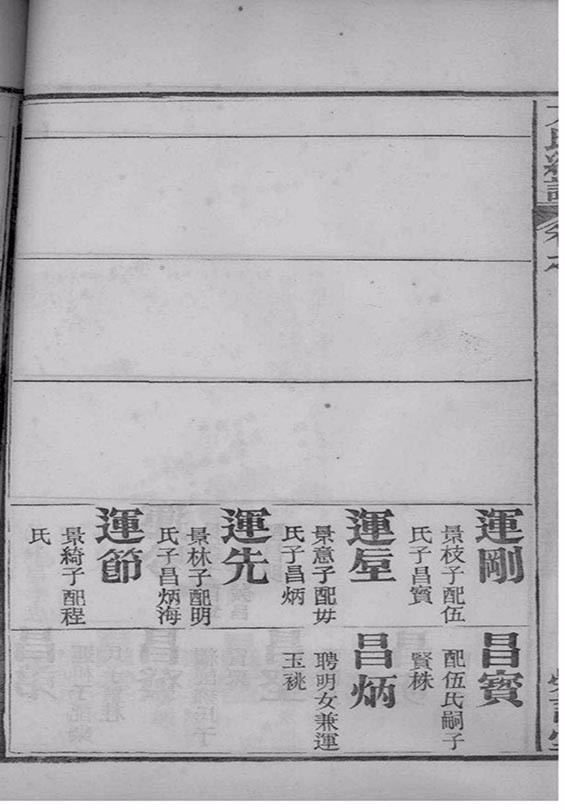 運剛
景枝子配伍
氏子昌寳
運垕
景意子配毋
氏子昌炳
運先
景林子配明
氏子昌炳海
運節
景綺子配程
氏
昌寳
配伍氏嗣子
賢株
昌炳
聘明女兼運
玉祧